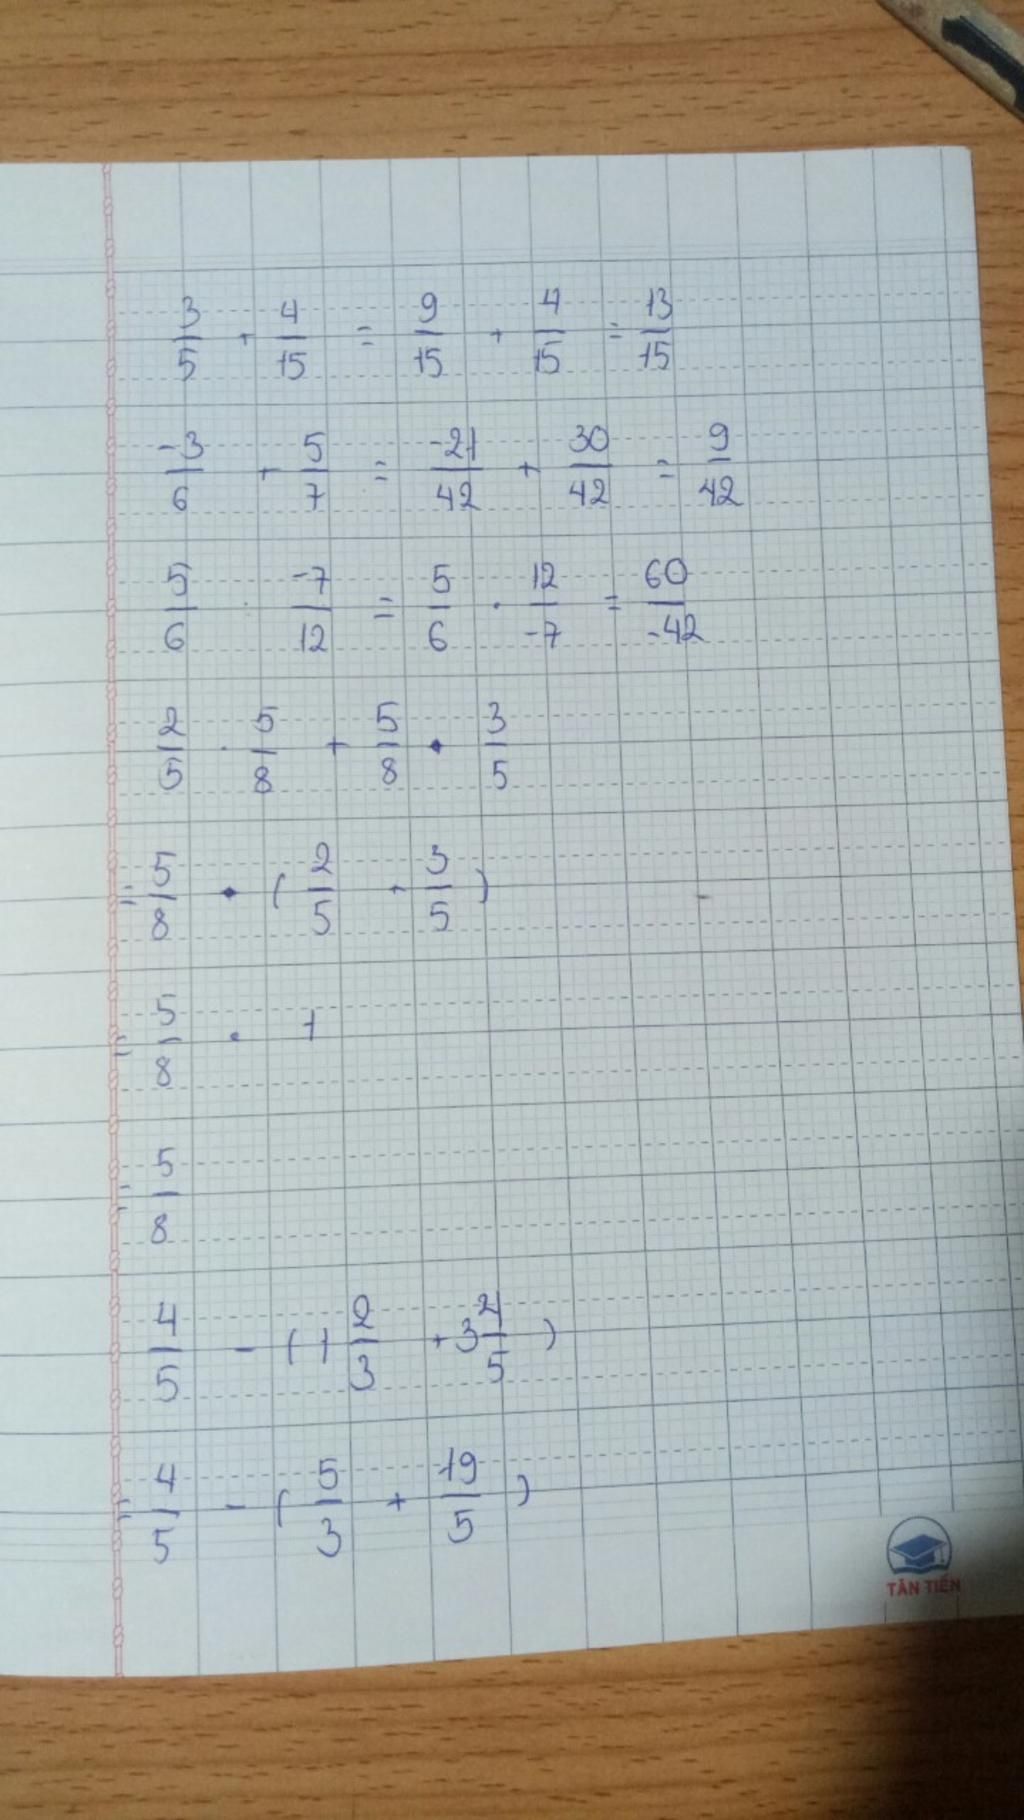 3/5 + 4/15 = 9/15 + 4/15 = 13/15
-3/6 + 5/7 = -21/42 + 30/42 = 9/42
5/6 . -7/12 = 5/6 . 12/-7 = 60/-42
2/5 . 5/8 + 5/8 . 3/5
= 5/8 . ( 2/5 + 3/5 )
= 5/8 . 1
= 5/8
4/5 - ( 1 2/3 + 3 4/5 )
= 4/5 - ( 5/3 + 19/5 )
TÂN TIẾN